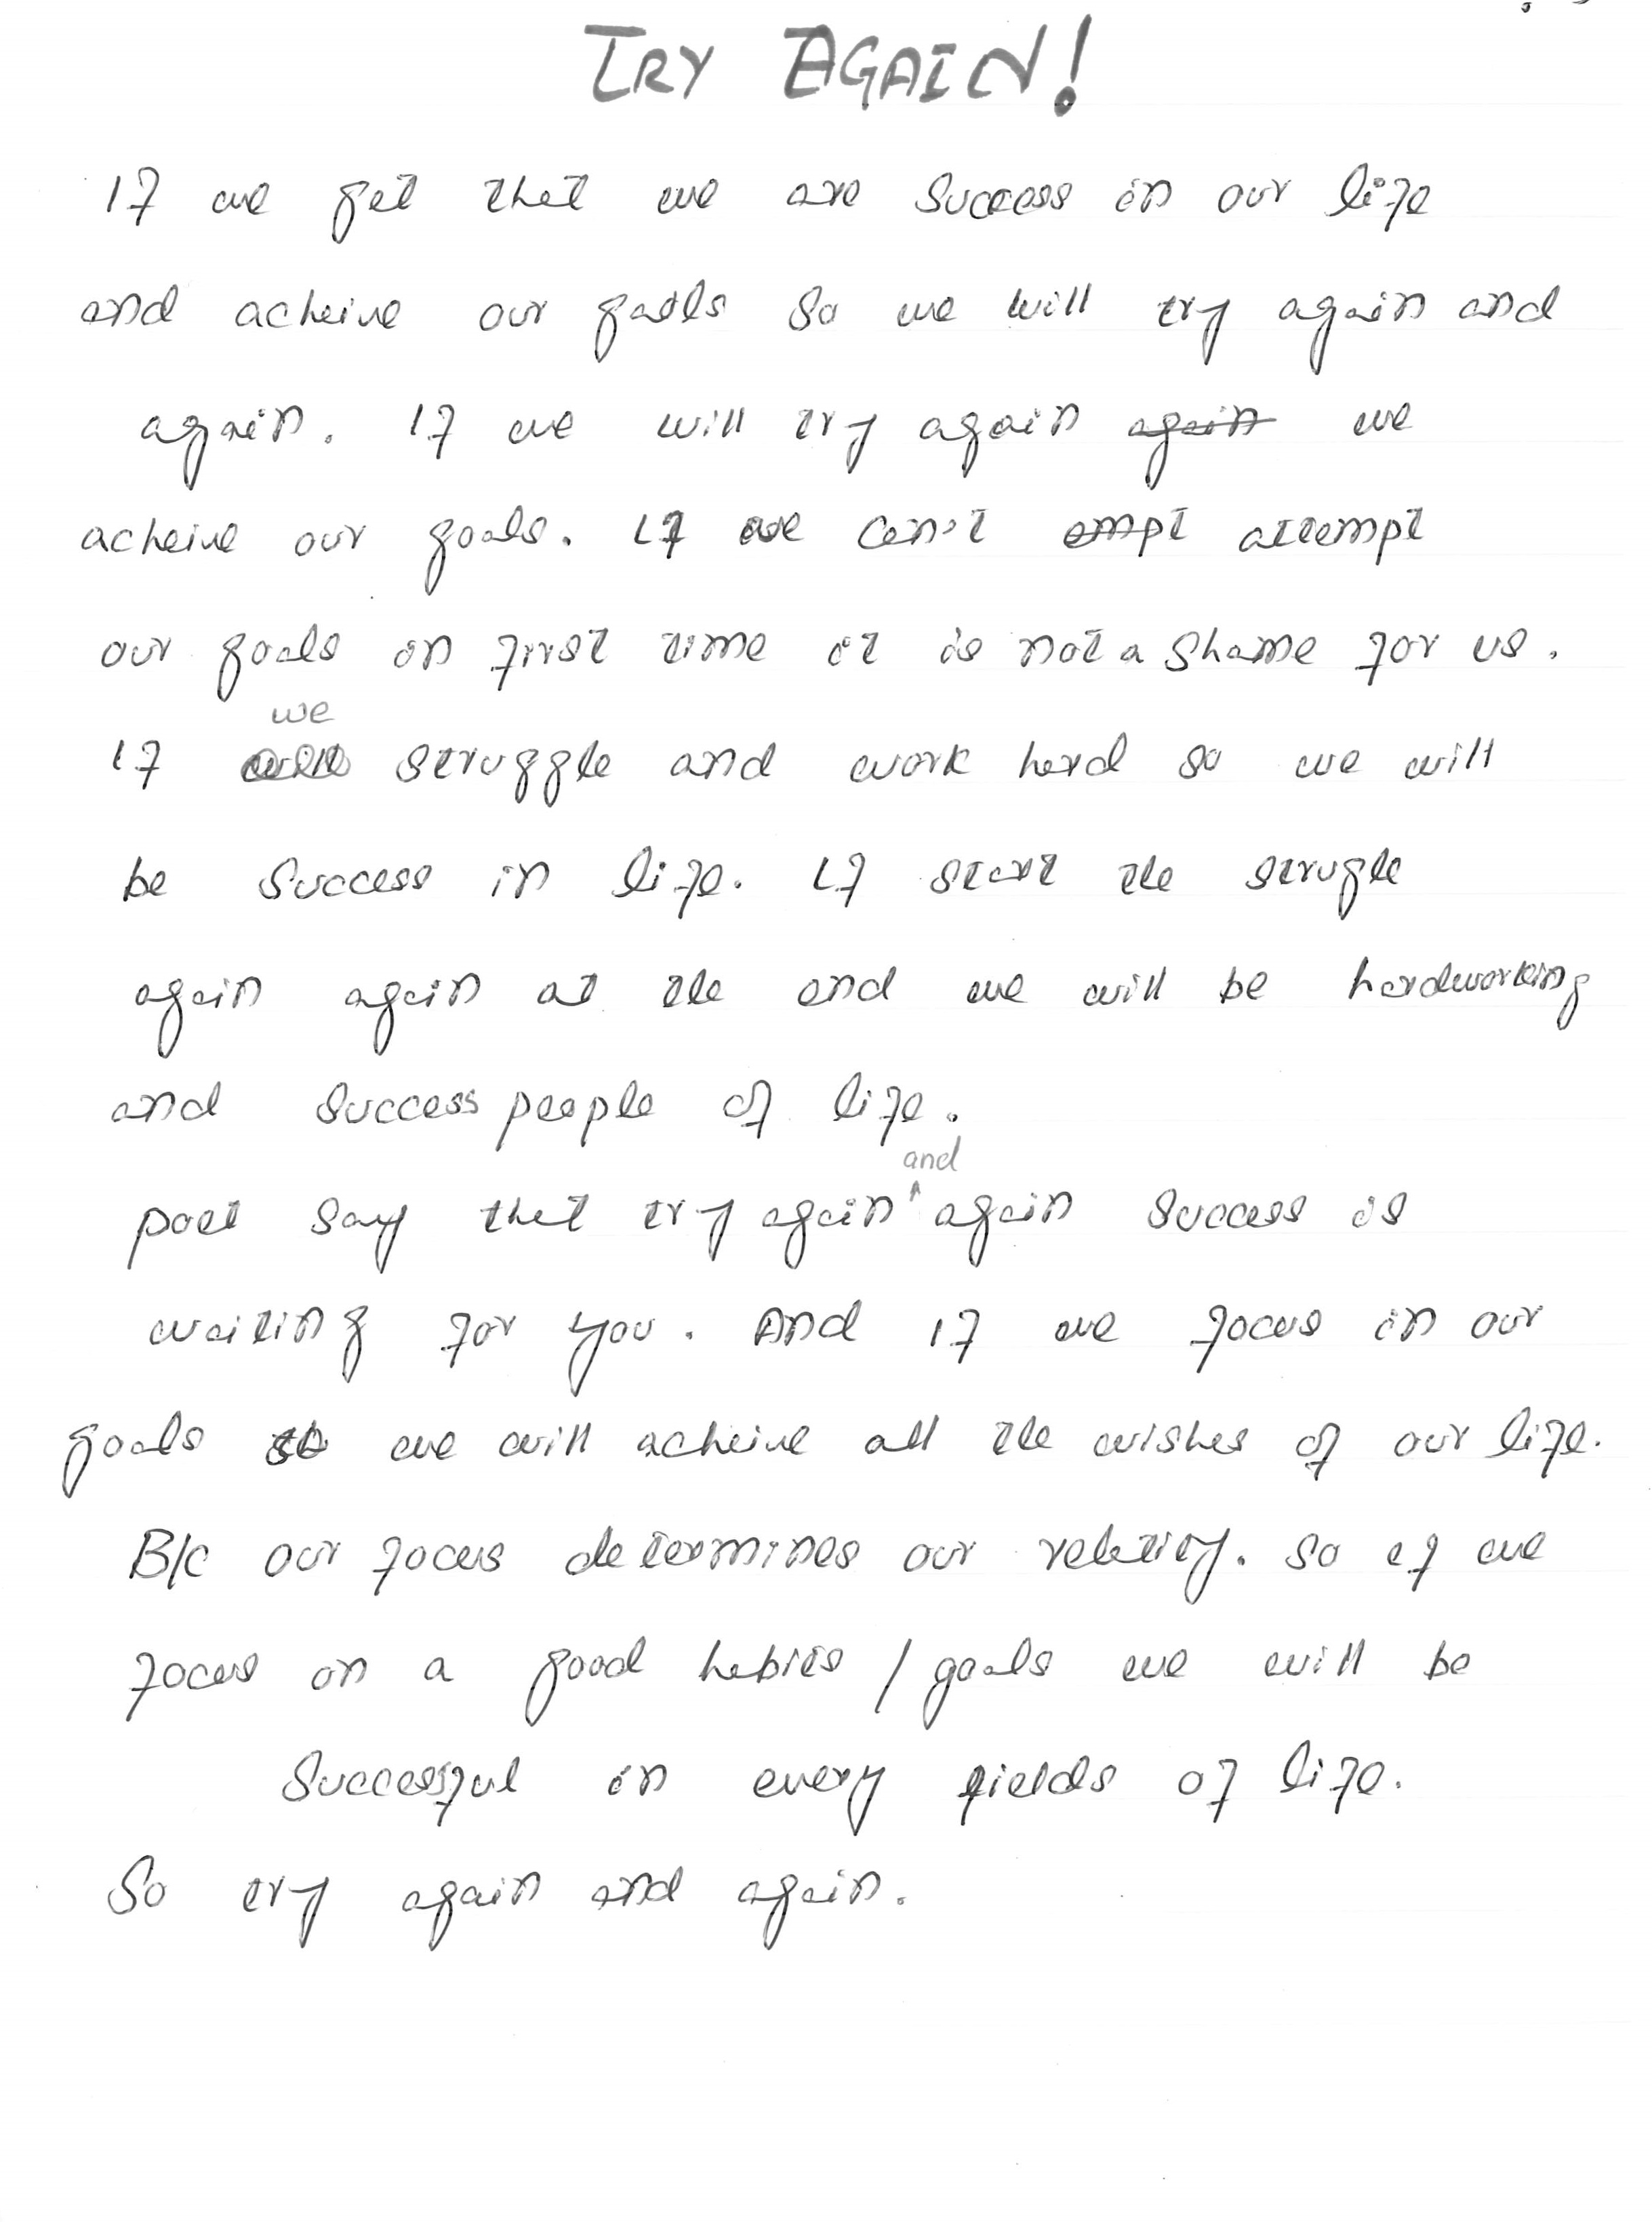 TRY AGAIN!
If we get that we are success in our life
and acheive our goals so we will try again and
again. If we will try again again we
acheive our goals. If we can't empt attempt
our goals on first time it is not a shame for us.
we
If struggle and work hard so we will
be success in life. If start the strugle
again again at the end we will be hardworking
and success people of life.
and
poet say that try again again success is
waiting for you. And if we focus in our
goals so we will acheive all the wishes of our life.
B/c our focus determines our relatity. So if we
focus on a good habits / goals we will be
Successful in every fields of life.
So try again and again.